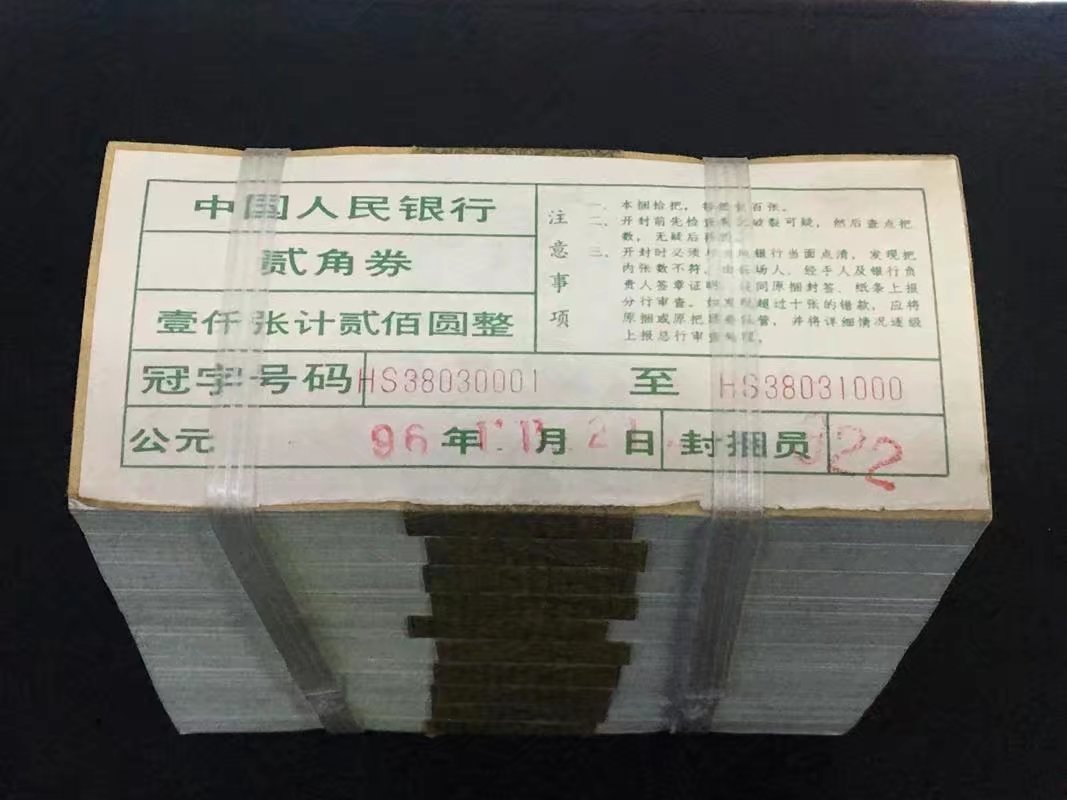 中国人民银行
贰角券
壹仟张计贰佰圆整
注意事项
一、本捆拾把，每把壹百张。
二、开封前先检查有无破裂可疑，然后查点把
数，无疑后再
三、开封时必须 银行当面点清，发现把
内张数不符，由在场人、经手人及银行负
责人签章证明，连同原捆封签、纸条上报
分行审查。如发现超过十张的错款，应将
原捆或原把 保管，并将详细情况逐级
上报总行审查处理。
冠字号码 HS38030001 至 HS38031000
公元 96 年 月 2 日 封捆员 322